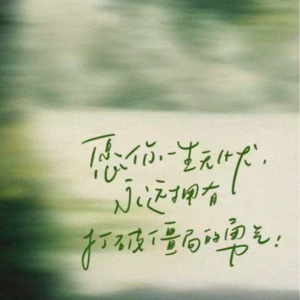 愿你一生无忧,
永远拥有
打破僵局的勇气!